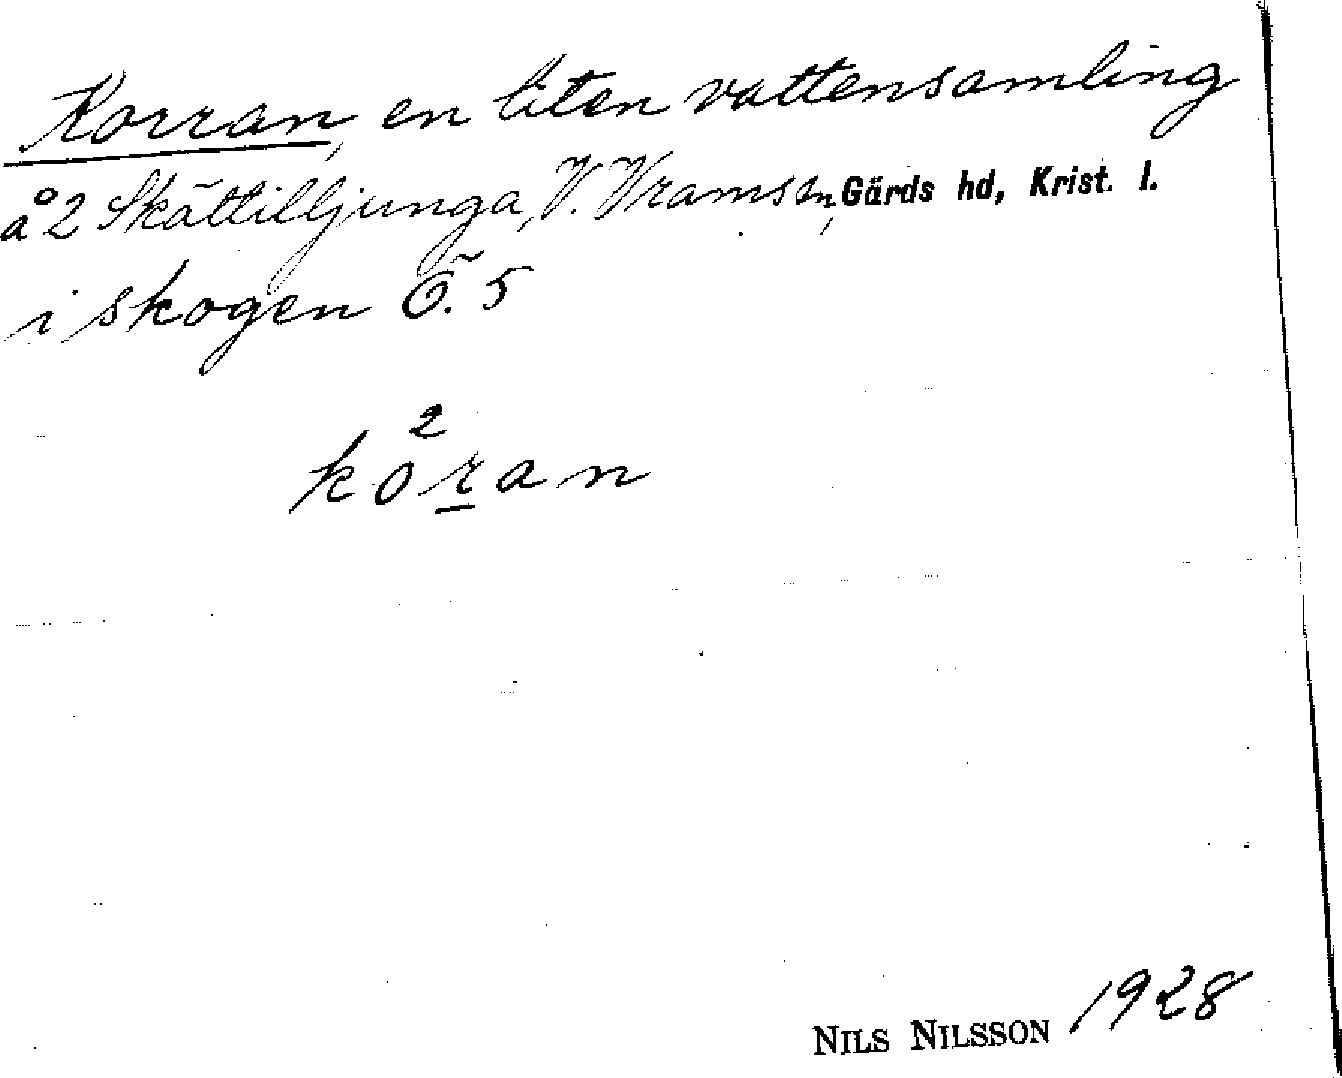 Korran, en liten vattensamling
å 2 Skättilljunga, V. Vrams sn, Gärds hd, Krist. l.
i skogen Ö. 5
2
koran
NILS NILSSON 1928